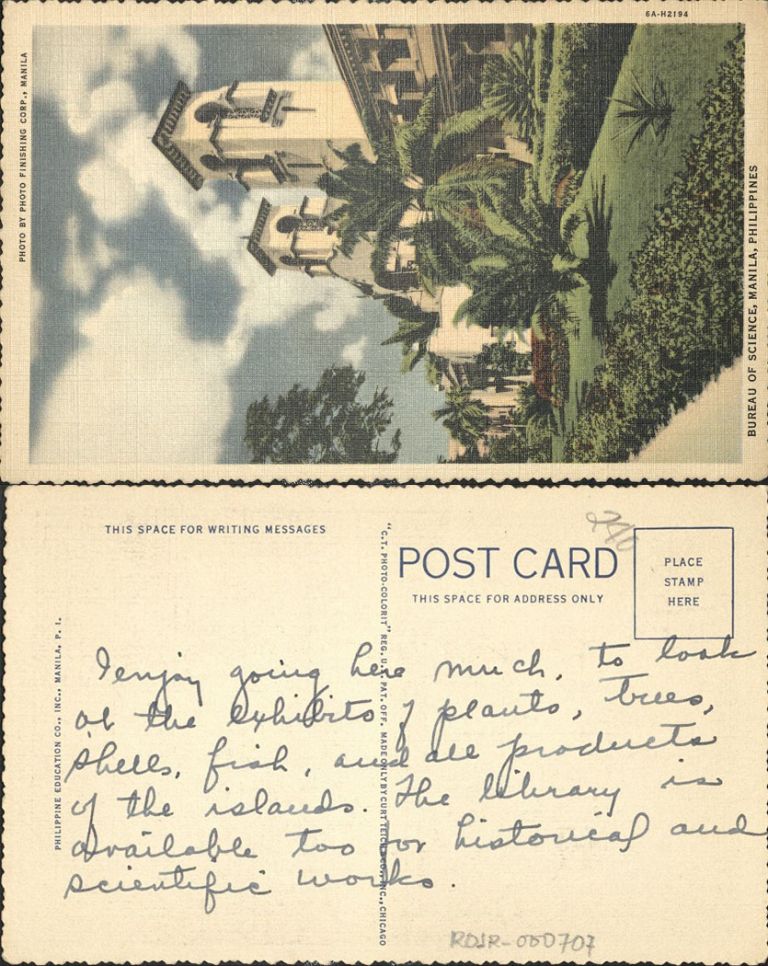 6A-H2194
PHOTO BY PHOTO FINISHING CORP., MANILA
BUREAU OF SCIENCE, MANILA, PHILIPPINES
THIS SPACE FOR WRITING MESSAGES
POST CARD
THIS SPACE FOR ADDRESS ONLY
PLACE
STAMP
HERE
240
PHILIPPINE EDUCATION CO., INC., MANILA, P. I.
"C.T. PHOTO-COLORIT" REG. U.S. PAT. OFF. MADE ONLY BY CURT TEICH & CO., INC., CHICAGO
I enjoy going here much, to look
at the exhibits of plants, trees,
shells, fish, and all products
of the islands. The library is
available too for historical and
scientific works.
RDJR-000707